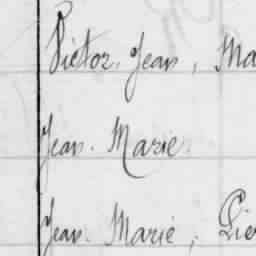 Victor, Jean, Ma
Jean. Marie.
Jean. Marie, Pier